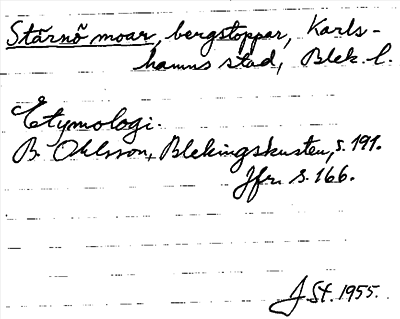 Stärnö moar, bergstoppar, Karls-
hamns stad, Blek. l.
Etymologi.
B. Ohlsson, Blekingskusten, s. 191.
Jfr s. 166.
J.St. 1955.